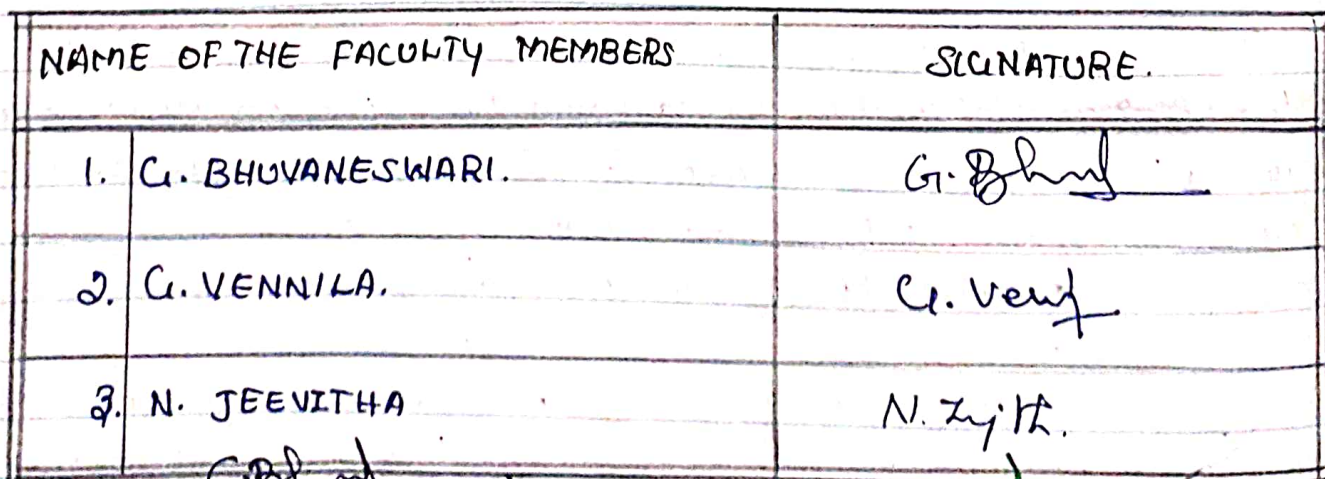 NAME OF THE FACULTY MEMBERS SIGNATURE.
1. G. BHUVANESWARI. G. Bhu
2. G. VENNILA. G. Ven
3. N. JEEVITHA N.